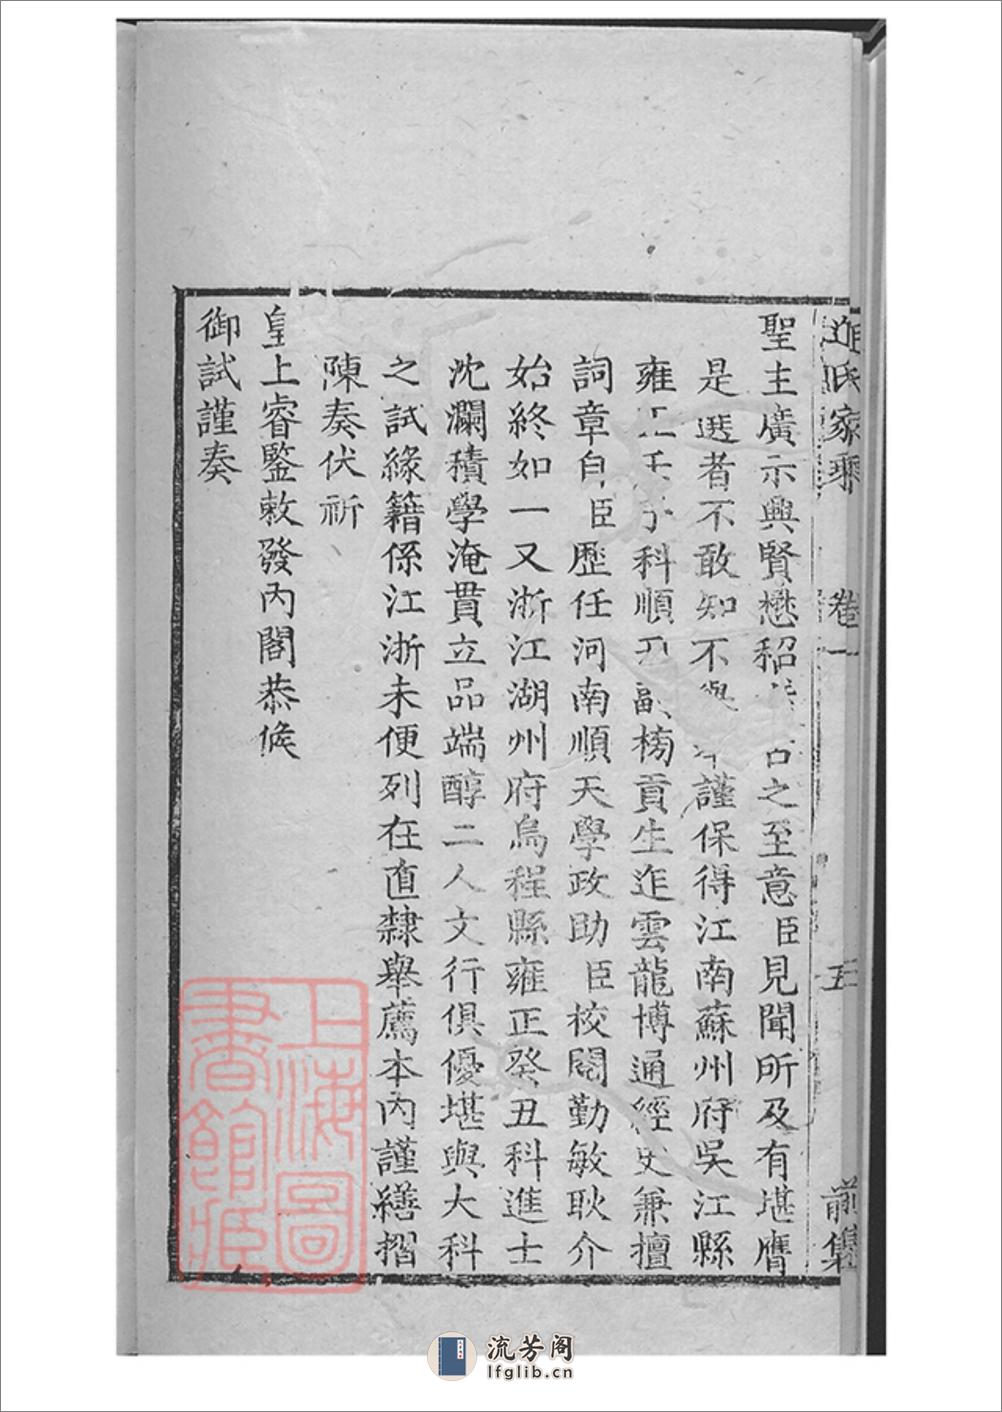 迮氏家乘 卷一 五 前集
聖主廣示興賢懋紹 之至意臣見聞所及有堪膺
是選者不敢知不與 謹保得江南蘇州府吳江縣
雍正壬子科順天副榜貢生迮雲龍博通經史兼擅
詞章自臣歷任河南順天學政助臣校閱勤敏耿介
始終如一又浙江湖州府烏程縣雍正癸丑科進士
沈瀾積學淹貫立品端醇二人文行俱優堪與大科
之試緣籍係江浙未便列在直隸舉薦本內謹繕摺
陳奏伏祈
皇上睿鑒敕發內閣恭候
御試謹奏
上海圖
書館藏
流芳阁
lfglib.cn